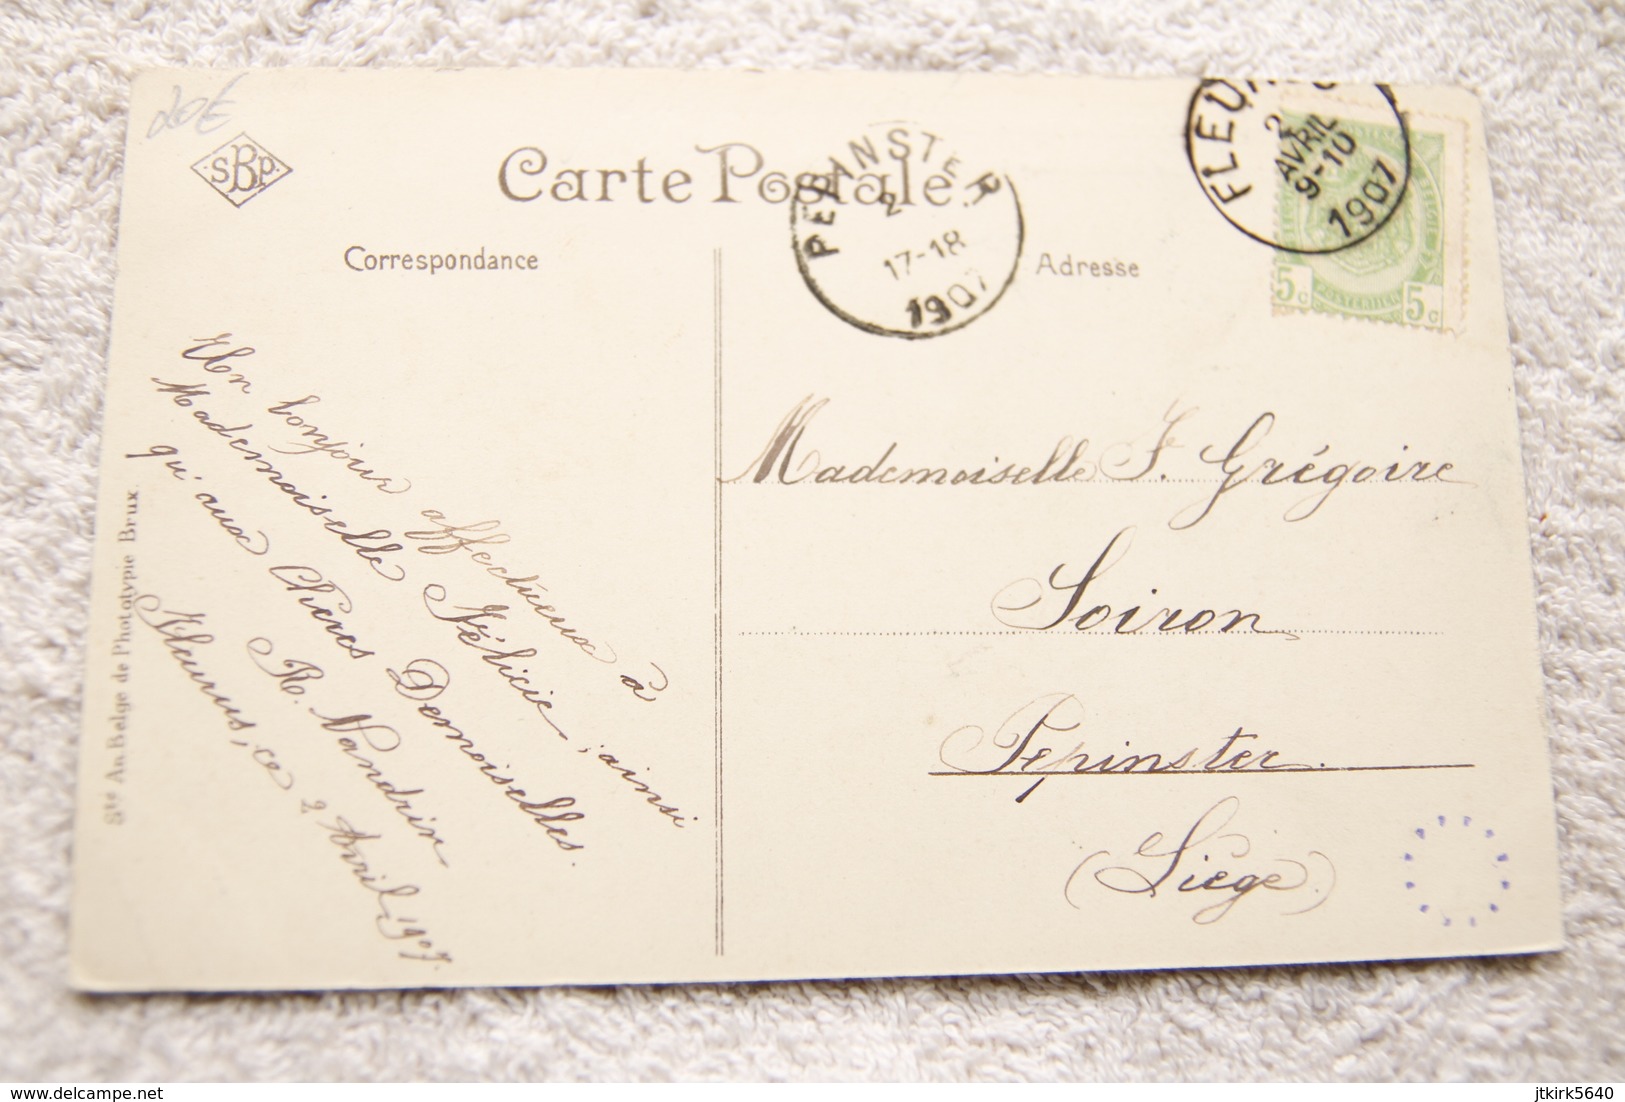 20€
SBP
Carte Postale
Correspondance
Adresse
PEPINSTER
2
17-18
1907
FLEU
2
AVRIL
9-10
1907
5c
POSTERIJEN
5c
Un bonjour affectueux à
Mademoiselle Félicie, ainsi
qu'aux Chères Demoiselles.
R. Nandrin
Fleurus, ce 2 Avril 1907.
Mademoiselle F. Grégoire
Soiron
Pepinster.
(Liége)
Sté An. Belge de Phototypie Brux.
delcampe.net
jtkirk5640